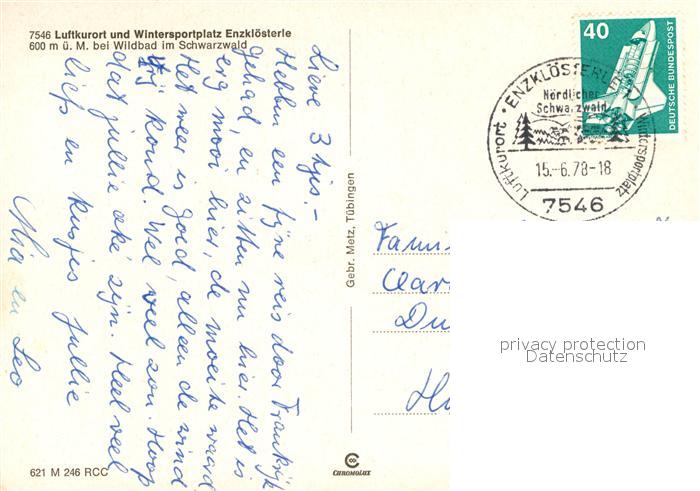 7546 Luftkurort und Wintersportplatz Enzklösterle
600 m ü. M. bei Wildbad im Schwarzwald
Lieve 3 tjes.-
Hebben een fijne reis door Frankrijk
gehad, en zitten nu hier. Het is
erg mooi hier, de moeite waard
Het weer is goed, alleen de wind
is koud. Wel veel zon. Hoop
dat jullie oké zijn. Heel veel
liefs en kusjes jullie
Mia en Leo
621 M 246 RCC
Gebr. Metz, Tübingen
CHROMOLUX
40
DEUTSCHE BUNDESPOST
ENZKLÖSTERLE
Nördlicher
Schwarzwald
Luftkurort
Wintersportplatz
15.-6.78-18
7546
Fami
Du
privacy protection
Datenschutz